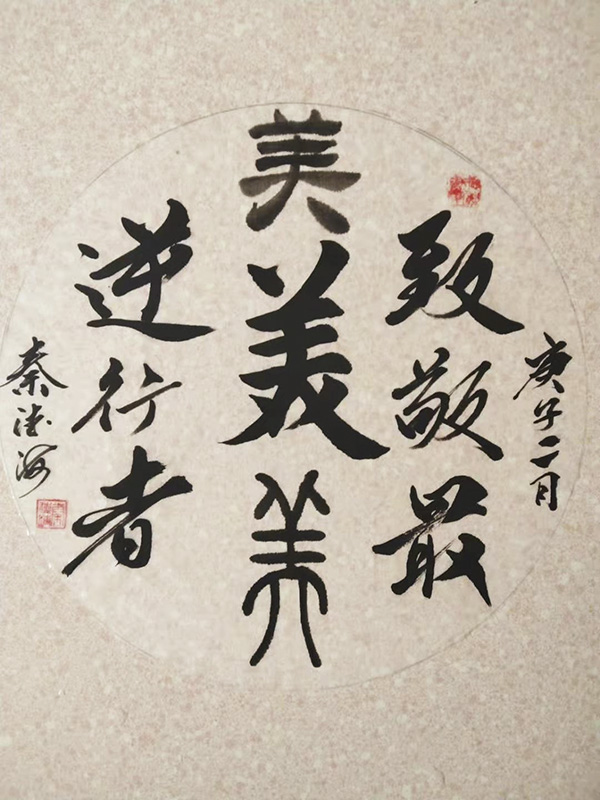 庚子二月
致敬最
美美美
逆行者
秦德海